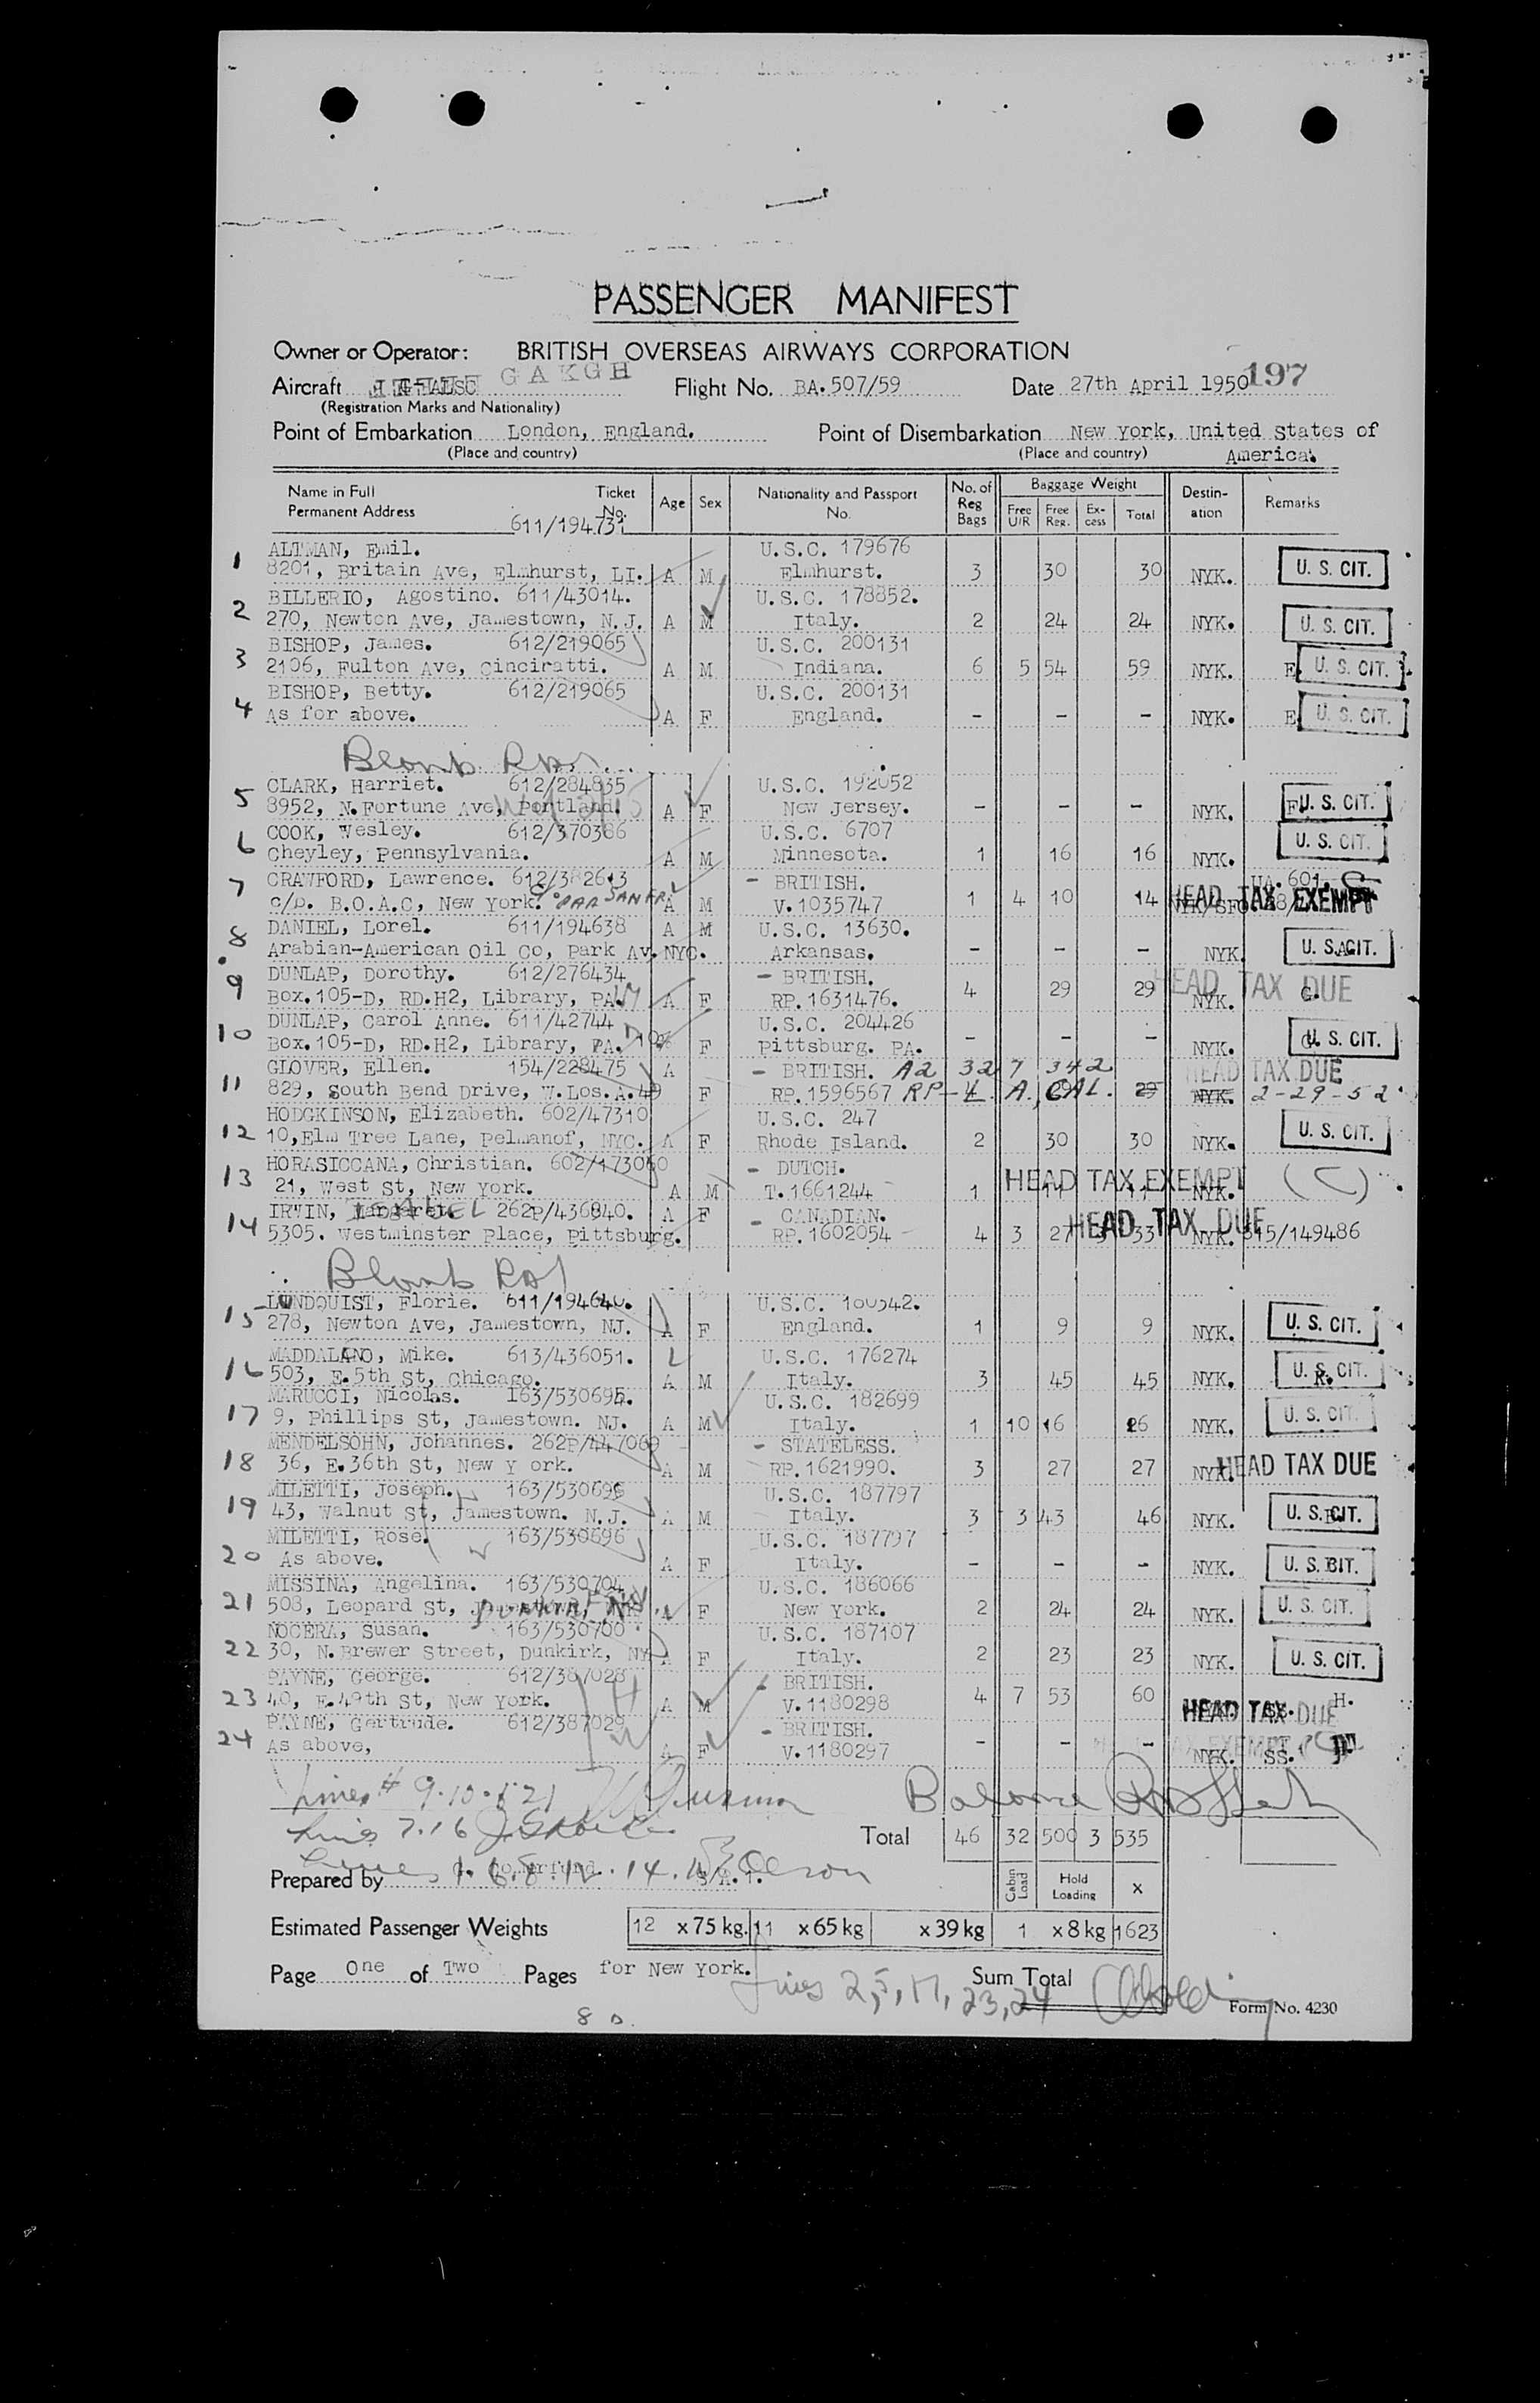 PASSENGER MANIFEST
Owner or Operator: BRITISH OVERSEAS AIRWAYS CORPORATION
Aircraft GAKGH Flight No. BA.507/59 Date 27th April 1950 197
(Registration Marks and Nationality)
Point of Embarkation London, England. Point of Disembarkation New York, United States of
(Place and country) (Place and country) America.
Name in Full Ticket Age Sex Nationality and Passport No. of Baggage Weight Destin- Remarks
Permanent Address No. No. Reg Bags Free U/R Free Reg. Ex- cess Total ation
611/194731
ALTMAN, Emil. U.S.C. 179676
1 8201, Britain Ave, Elmhurst, LI. A M Elmhurst. 3 30 30 NYK. U. S. CIT.
BILLERIO, Agostino. 611/43014. U.S.C. 178852.
2 270, Newton Ave, Jamestown, N.J. A M Italy. 2 24 24 NYK. U. S. CIT.
BISHOP, James. 612/219065 U.S.C. 200131
3 2106, Fulton Ave, Cinciratti. A M Indiana. 6 5 54 59 NYK. E. U. S. CIT.
BISHOP, Betty. 612/219065 U.S.C. 200131
4 As for above. A F England. - - - NYK. E. U. S. CIT.
CLARK, Harriet. 612/284835 U.S.C. 192052
5 8952, N.Fortune Ave, Portland. A F New Jersey. - - - NYK. F. U. S. CIT.
COOK, Wesley. 612/370386 U.S.C. 6707
6 Cheyley, Pennsylvania. A M Minnesota. 1 16 16 NYK. U. S. CIT.
CRAWFORD, Lawrence. 612/382613 - BRITISH. UA. 601.
7 c/o. B.O.A.C, New York. A M V.1035747 1 4 10 14 HEAD TAX EXEMPT
DANIEL, Lorel. 611/194638 A M U.S.C. 13630.
8 Arabian-American Oil Co, Park Av. NYC. Arkansas. - - - NYK. U. S. CIT.
DUNLAP, Dorothy. 612/276434 - BRITISH.
9 Box.105-D, RD.H2, Library, PA. A F RP.1631476. 4 29 29 NYK. HEAD TAX DUE G.
DUNLAP, Carol Anne. 611/42744 U.S.C. 204426
10 Box.105-D, RD.H2, Library, PA. F Pittsburg. PA. - - - NYK. U. S. CIT.
GLOVER, Ellen. 154/228475 A - BRITISH. A2 327 342 HEAD TAX DUE
11 829, South Bend Drive, W.Los.A.49 F RP.1596567 RP-L. A., CAL. NYK. 2-29-52
HODGKINSON, Elizabeth. 602/47310 U.S.C. 247
12 10, Elm Tree Lane, Pelmanof, NYC. A F Rhode Island. 2 30 30 NYK. U. S. CIT.
HORASICCANA, Christian. 602/173060 - DUTCH.
13 21, West St, New York. A M T.1661244 1 HEAD TAX EXEMPT NYK. (C)
IRWIN, 262P/436840. A F - CANADIAN.
14 5305. Westminster Place, Pittsburg. RP.1602054 4 3 27 33 HEAD TAX DUE NYK. 815/149486
LUNDQUIST, Florie. 611/194640. U.S.C. 
15 278, Newton Ave, Jamestown, NJ. A F England. 1 9 9 NYK. U. S. CIT.
MADDALANO, Mike. 613/436051. U.S.C. 176274
16 503, E.5th St, Chicago. A M Italy. 3 45 45 NYK. U. S. CIT.
MARUCCI, Nicolas. 163/530695. U.S.C. 182699
17 9, Phillips St, Jamestown. NJ. A M Italy. 1 10 16 26 NYK. U. S. CIT.
MENDELSOHN, Johannes. 262P/447069 - STATELESS.
18 36, E.36th St, New Y ork. A M RP.1621990. 3 27 27 NYK. HEAD TAX DUE
MILETTI, Joseph. 163/530696 U.S.C. 187797
19 43, Walnut St, Jamestown. N.J. A M Italy. 3 3 43 46 NYK. U. S. CIT.
MILETTI, Rose. 163/530696 U.S.C. 187797
20 As above. A F Italy. - - - NYK. U. S. CIT.
MISSINA, Angelina. 163/530704 U.S.C. 186066
21 508, Leopard St, DUNKIRK A F New York. 2 24 24 NYK. U. S. CIT.
NOCERA, Susan. 163/530700 U.S.C. 187107
22 30, N.Brewer Street, Dunkirk, NY A F Italy. 2 23 23 NYK. U. S. CIT.
PAYNE, George. 612/387028 - BRITISH.
23 40, E.49th St, New York. A M V.1180298 4 7 53 60 HEAD TAX DUE H.
PAYNE, Gertrude. 612/387029 - BRITISH.
24 As above, A F V.1180297 - - - NYK. SS.
Total 46 32 500 3 535
Prepared by
Cabin Load Hold Loading X
Estimated Passenger Weights 12 x 75 kg. 11 x 65 kg x 39 kg 1 x 8 kg 1623
Page One of Two Pages for New York. Sum Total
Lines 2, 5, 17, 23, 24
Form No. 4230